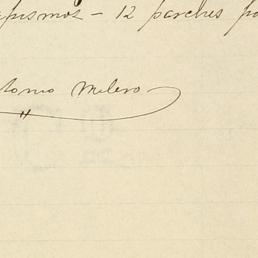 apismos — 12 parches po
tonio Melero